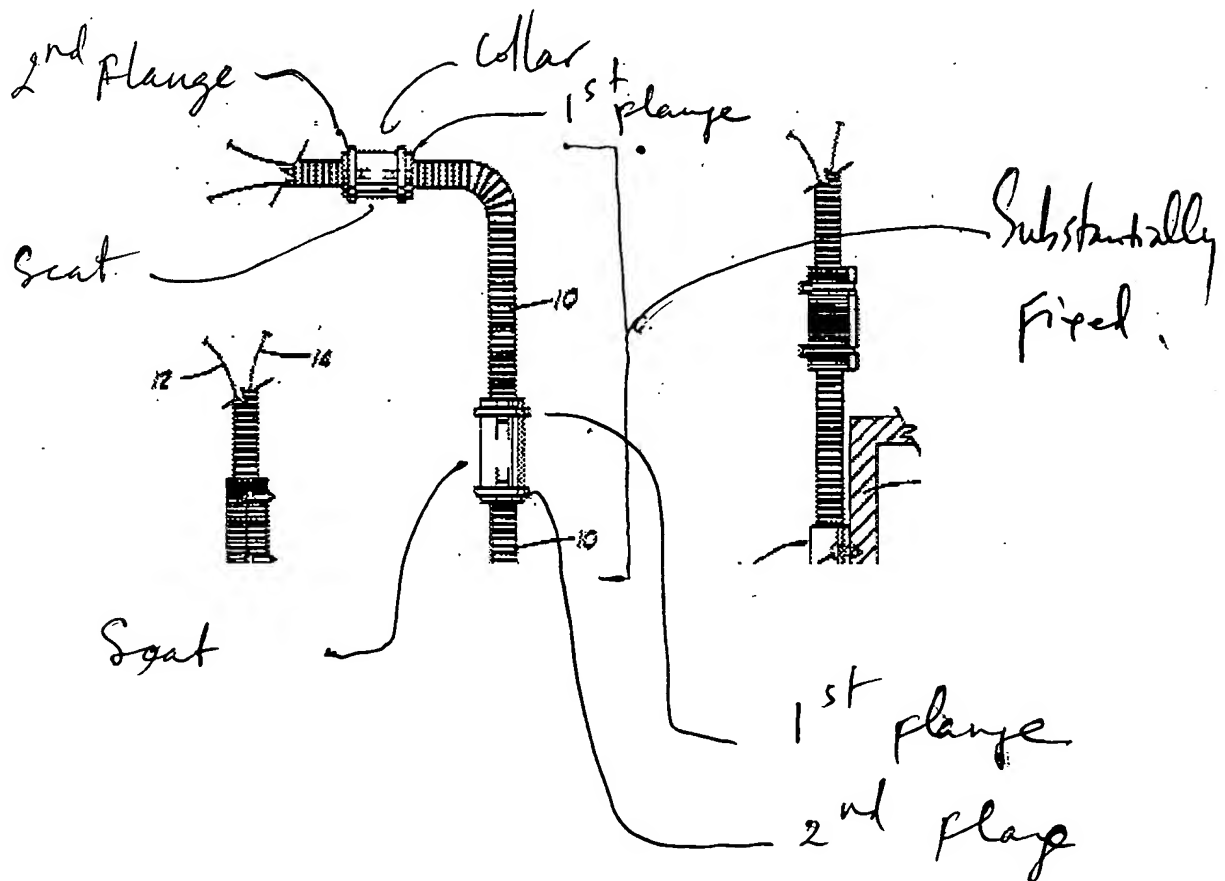 2nd Flange
Collar
1st flange
Seat
Substantially
Fixed.
10
12
14
10
Seat
1st flange
2nd flage